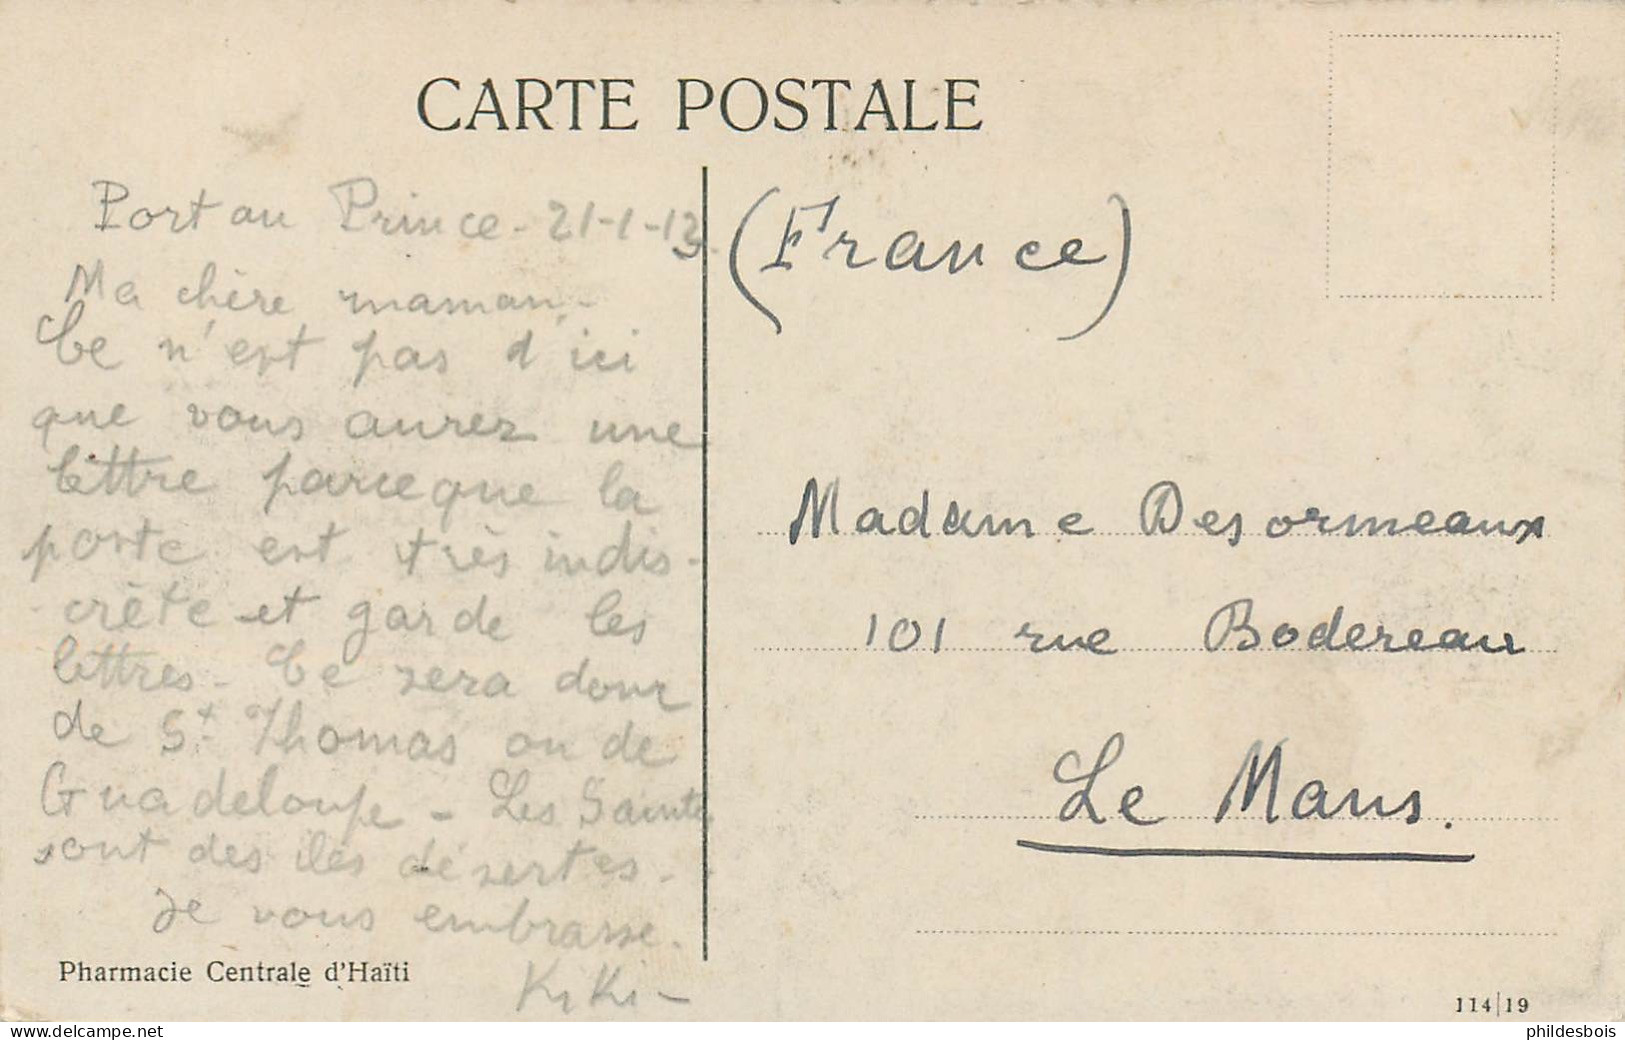 CARTE POSTALE
Port au Prince - 21-1-13.
Ma chère maman,
Ce n'est pas d'ici
que vous aurez une
lettre parceque la
poste est très indis-
crète et garde les
lettres. Ce sera donc
de St Thomas ou de
Guadeloupe - Les Saintes
sont des îles désertes.
Je vous embrasse.
KiKi-
Pharmacie Centrale d'Haïti
(France)
Madame Desormeaux
101 rue Bodereau
Le Mans.
114|19
delcampe.net
phildesbois